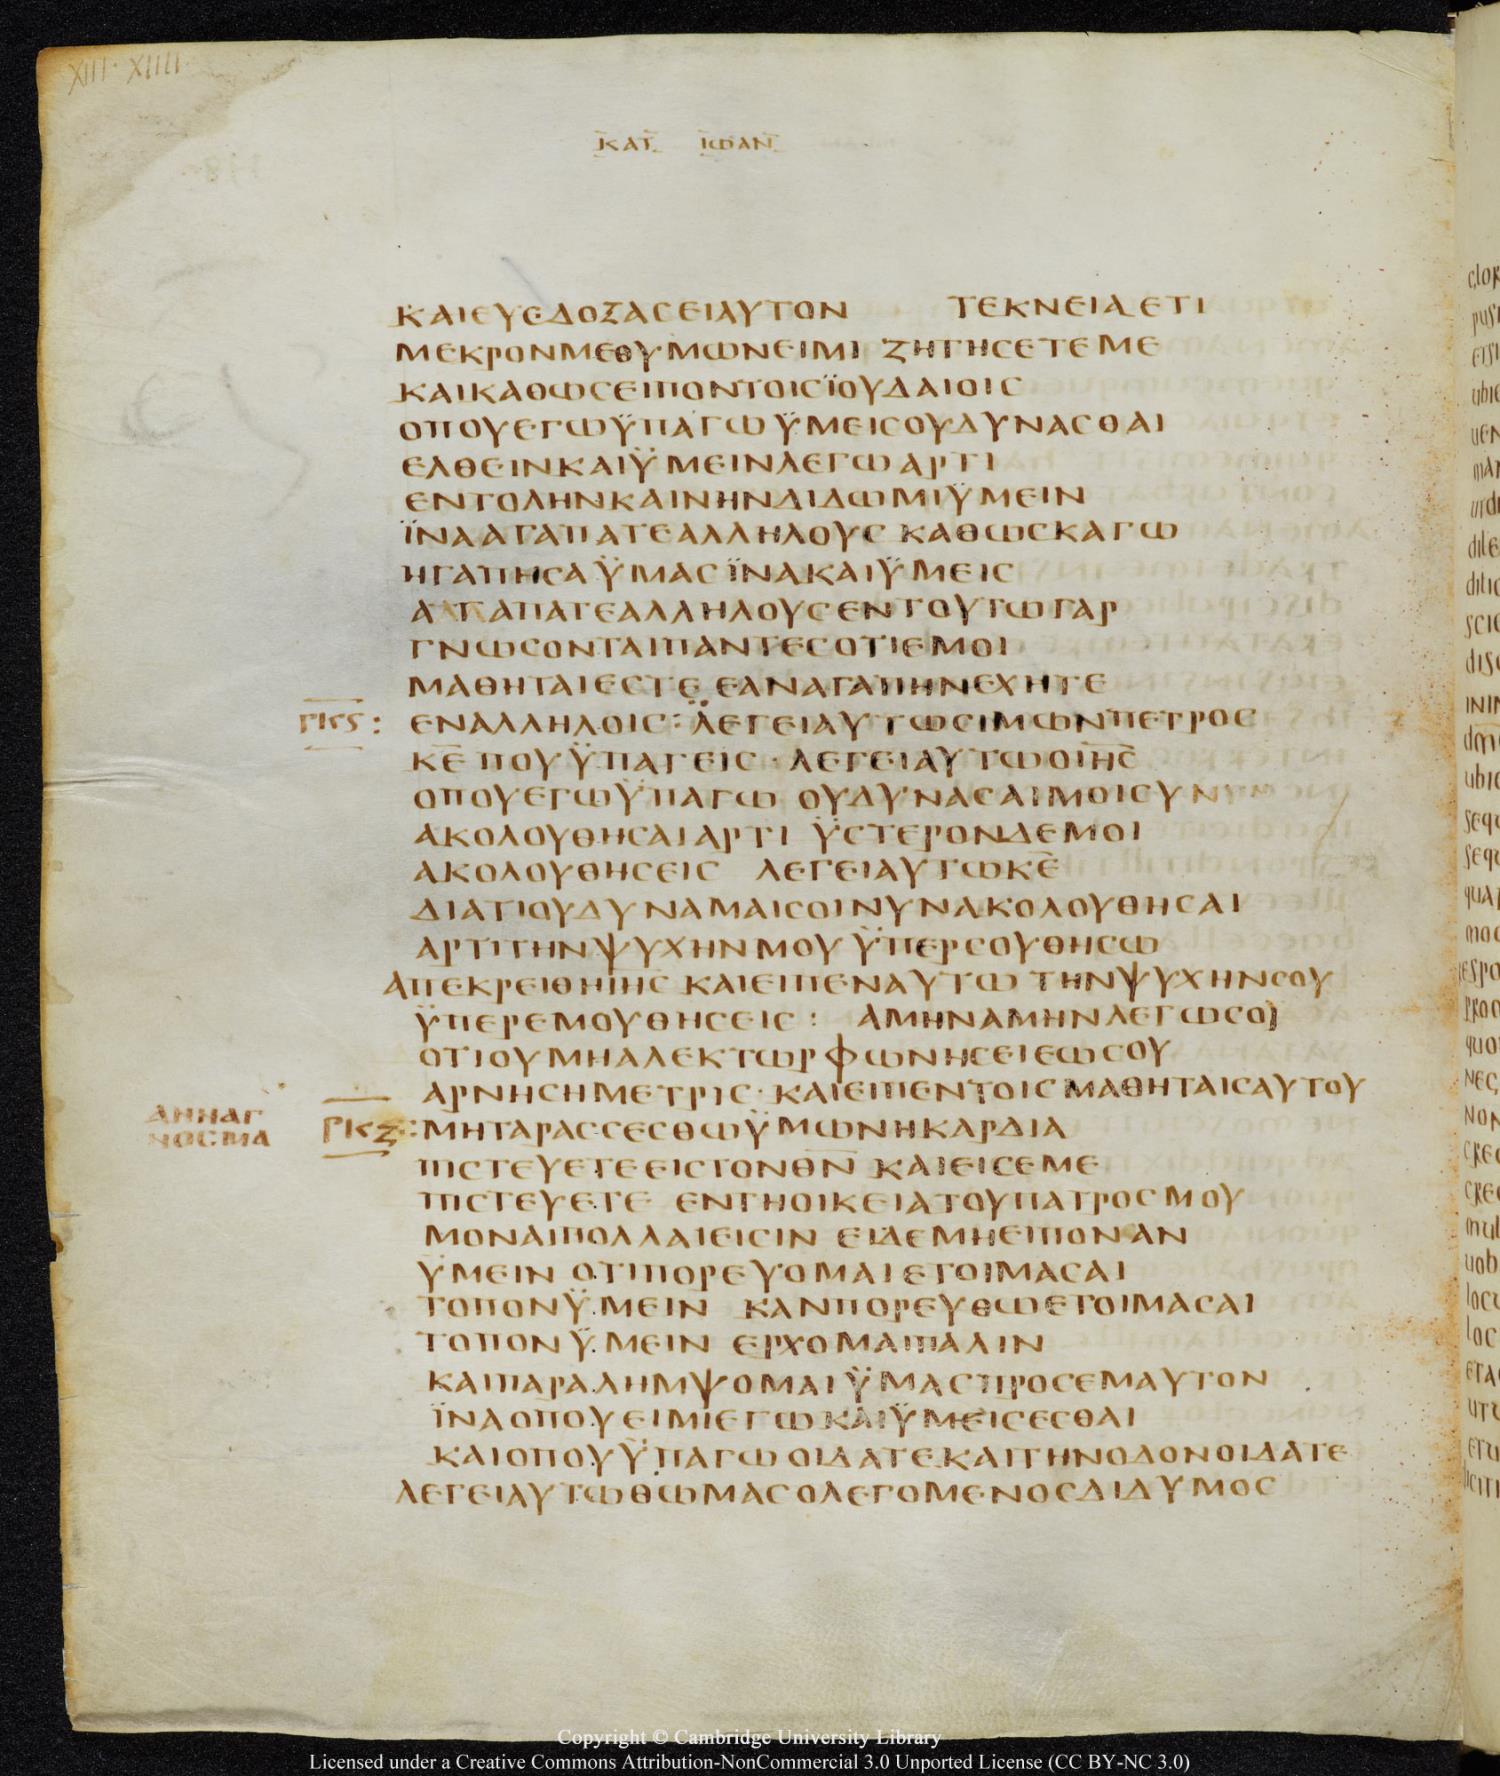 XIII · XIIII
ΚΑΤ ΙΩΑΝ
ΚΑΙΕΥΕΔΟΞΑΣΕΙΑΥΤΟΝ ΤΕΚΝΕΙΑ ΕΤΙ
ΜΕΚΡΟΝΜΕΘΥΜΩΝΕΙΜΙ ΖΗΤΗϹΕΤΕΜΕ
ΚΑΙΚΑΘΩϹΕΙΠΟΝΤΟΙϹΪΟΥΔΑΙΟΙϹ
ΟΠΟΥΕΓΩΫΠΑΓΩΫΜΕΙϹΟΥΔΥΝΑϹΘΑΙ
ΕΛΘΕΙΝΚΑΙΫΜΕΙΝΛΕΓΩΑΡΤΙ
ΕΝΤΟΛΗΝΚΑΙΝΗΝΔΙΔΩΜΙΫΜΕΙΝ
ΪΝΑΑΓΑΠΑΤΕΑΛΛΗΛΟΥϹ ΚΑΘΩϹΚΑΓΩ
ΗΓΑΠΗϹΑΫΜΑϹΪΝΑΚΑΙΫΜΕΙϹ
ΑΓΑΠΑΤΕΑΛΛΗΛΟΥϹΕΝΤΟΥΤΩΓΑΡ
ΓΝΩϹΟΝΤΑΙΠΑΝΤΕϹΟΤΙΕΜΟΙ
ΜΑΘΗΤΑΙΕϹΤΕ ΕΑΝΑΓΑΠΗΝΕΧΗΤΕ
ΡΚϚ : ΕΝΑΛΛΗΛΟΙϹ : ΛΕΓΕΙΑΥΤΩϹΙΜΩΝΠΕΤΡΟϹ
Κ̅Ε̅ ΠΟΥΫΠΑΓΕΙϹ · ΛΕΓΕΙΑΥΤΩΟΙ̅Η̅Ϲ̅
ΟΠΟΥΕΓΩΫΠΑΓΩ ΟΥΔΥΝΑϹΑΙΜΟΙϹΥΝΥΝ
ΑΚΟΛΟΥΘΗϹΑΙΑΡΤΙ ΫϹΤΕΡΟΝΔΕΜΟΙ
ΑΚΟΛΟΥΘΗϹΕΙϹ ΛΕΓΕΙΑΥΤΩΚ̅Ε̅
ΔΙΑΤΙΟΥΔΥΝΑΜΑΙϹΟΙΝΥΝΑΚΟΛΟΥΘΗϹΑΙ
ΑΡΤΙΤΗΝΨΥΧΗΝΜΟΥΫΠΕΡϹΟΥΘΗϹΩ
ΑΠΕΚΡΕΙΘΗΙΗϹ ΚΑΙΕΙΠΕΝΑΥΤΩ ΤΗΝΨΥΧΗΝϹΟΥ
ΫΠΕΡΕΜΟΥΘΗϹΕΙϹ : ΑΜΗΝΑΜΗΝΛΕΓΩϹΟΙ
ΟΤΙΟΥΜΗΑΛΕΚΤΩΡΦΩΝΗϹΕΙΕΩϹΟΥ
ΑΡΝΗϹΗΜΕΤΡΙϹ · ΚΑΙΕΙΠΕΝΤΟΙϹΜΑΘΗΤΑΙϹΑΥΤΟΥ
ΑΝΝΑΓ
ΝΟϹΜΑ
ΡΚΖ : ΜΗΤΑΡΑϹϹΕϹΘΩΫΜΩΝΗΚΑΡΔΙΑ
ΠΙϹΤΕΥΕΤΕΕΙϹΤΟΝΘ̅Ν̅ ΚΑΙΕΙϹΕΜΕ
ΠΙϹΤΕΥΕΤΕ ΕΝΤΗΟΙΚΕΙΑΤΟΥΠΑΤΡΟϹΜΟΥ
ΜΟΝΑΙΠΟΛΛΑΙΕΙϹΙΝ ΕΙΔΕΜΗΕΙΠΟΝΑΝ
ΫΜΕΙΝ ΟΤΙΠΟΡΕΥΟΜΑΙΕΤΟΙΜΑϹΑΙ
ΤΟΠΟΝΫΜΕΙΝ ΚΑΝΠΟΡΕΥΘΩΕΤΟΙΜΑϹΑΙ
ΤΟΠΟΝΫΜΕΙΝ ΕΡΧΟΜΑΙΠΑΛΙΝ
ΚΑΙΠΑΡΑΛΗΜΨΟΜΑΙΫΜΑϹΠΡΟϹΕΜΑΥΤΟΝ
ΪΝΑΟΠΟΥΕΙΜΙΕΓΩΚΑΙΫΜΕΙϹΕϹΘΑΙ
ΚΑΙΟΠΟΥΫΠΑΓΩΟΙΔΑΤΕΚΑΙΤΗΝΟΔΟΝΟΙΔΑΤΕ
ΛΕΓΕΙΑΥΤΩΘΩΜΑϹΟΛΕΓΟΜΕΝΟϹΔΙΔΥΜΟϹ
Copyright © Cambridge University Library
Licensed under a Creative Commons Attribution-NonCommercial 3.0 Unported License (CC BY-NC 3.0)